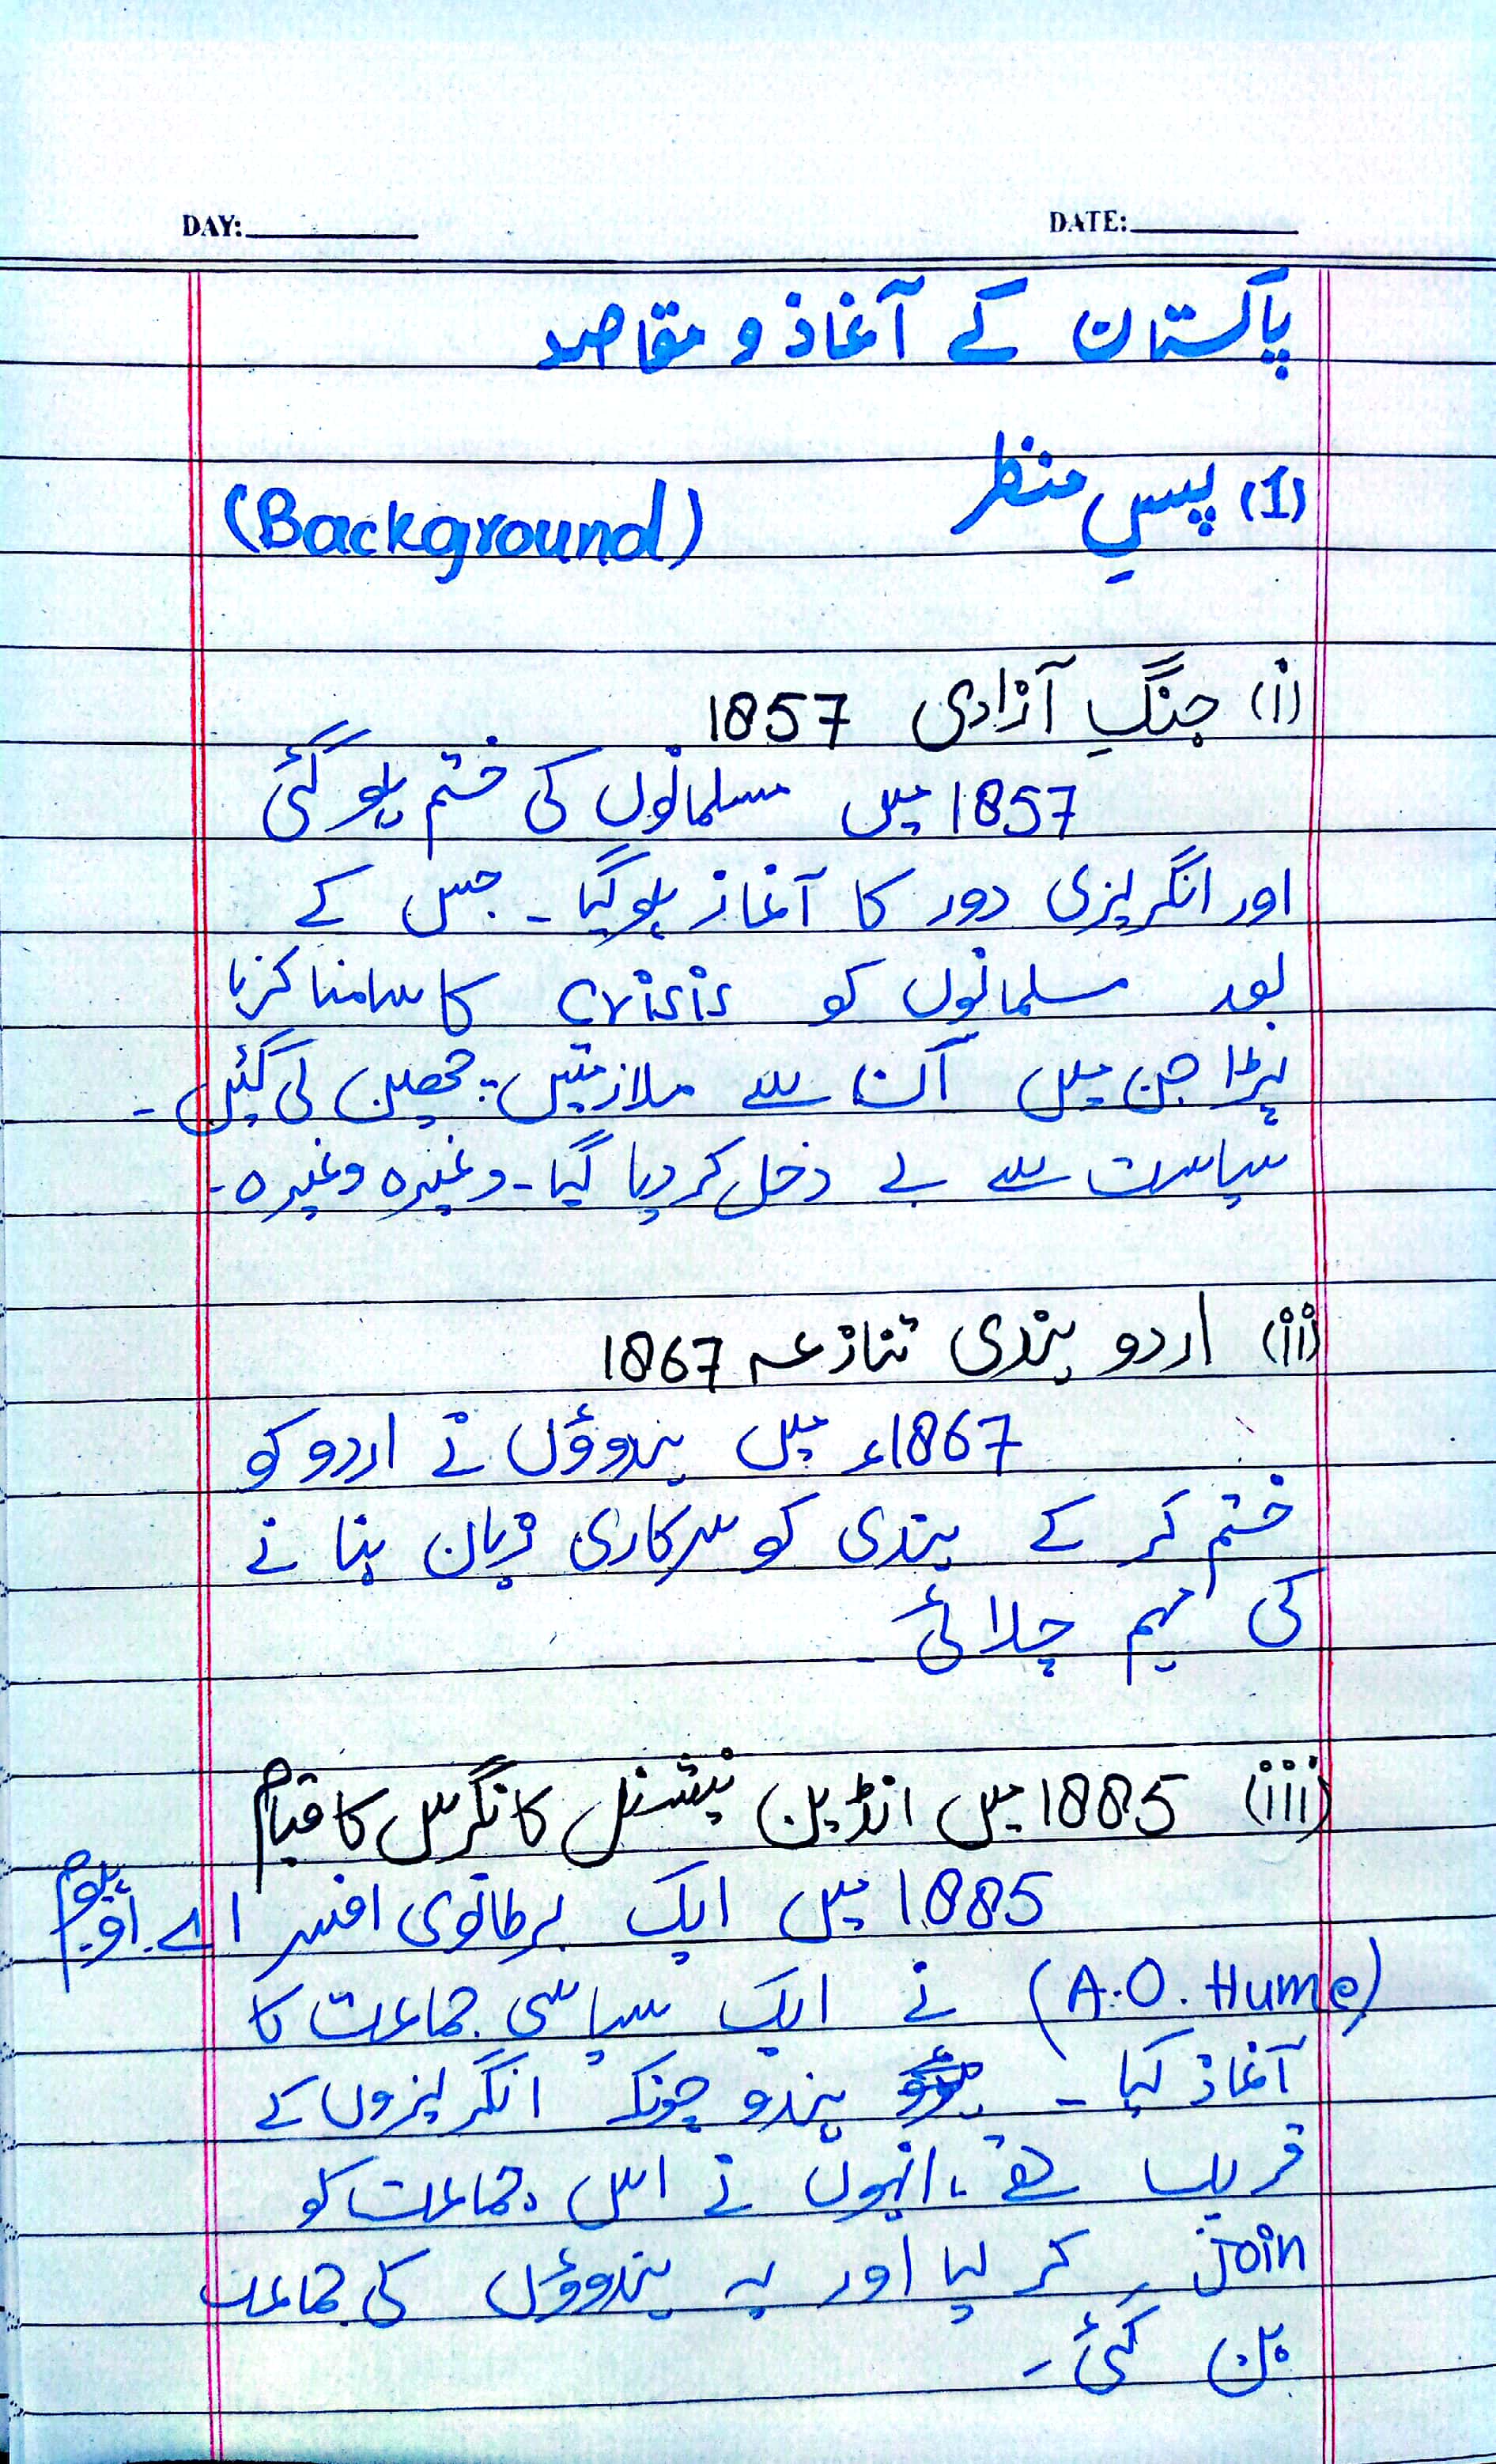 DAY: DATE:
پاکستان کے آغاذ و مقاصد
(1) پسِ منظر (Background)
(i) جنگِ آزادی 1857
1857 میں مسلمانوں کی ختم ہو گئی
اور انگریزی دور کا آغاز ہوگیا۔ جس کے
بعد مسلمانوں کو crisis کا سامنا کرنا
پڑا جن میں اُن سے ملازمتیں چھین لی گئیں۔
سیاست سے بے دخل کر دیا گیا۔ وغیرہ وغیرہ۔
(ii) اردو ہندی تنازعہ 1867
1867ء میں ہندوؤں نے اردو کو
ختم کر کے ہندی کو سرکاری زبان بنانے
کی مہم چلائی۔
(iii) 1885 میں انڈین نیشنل کانگرس کا قیام
1885 میں ایک برطانوی افسر اے۔او۔ہیوم
(A.O. Hume) نے ایک سیاسی جماعت کا
آغاذ کیا۔ ہندو چونکہ انگریزوں کے
قریب تھے، انہوں نے اس جماعت کو
Join کر لیا اور یہ ہندوؤں کی جماعت
بن گئی۔